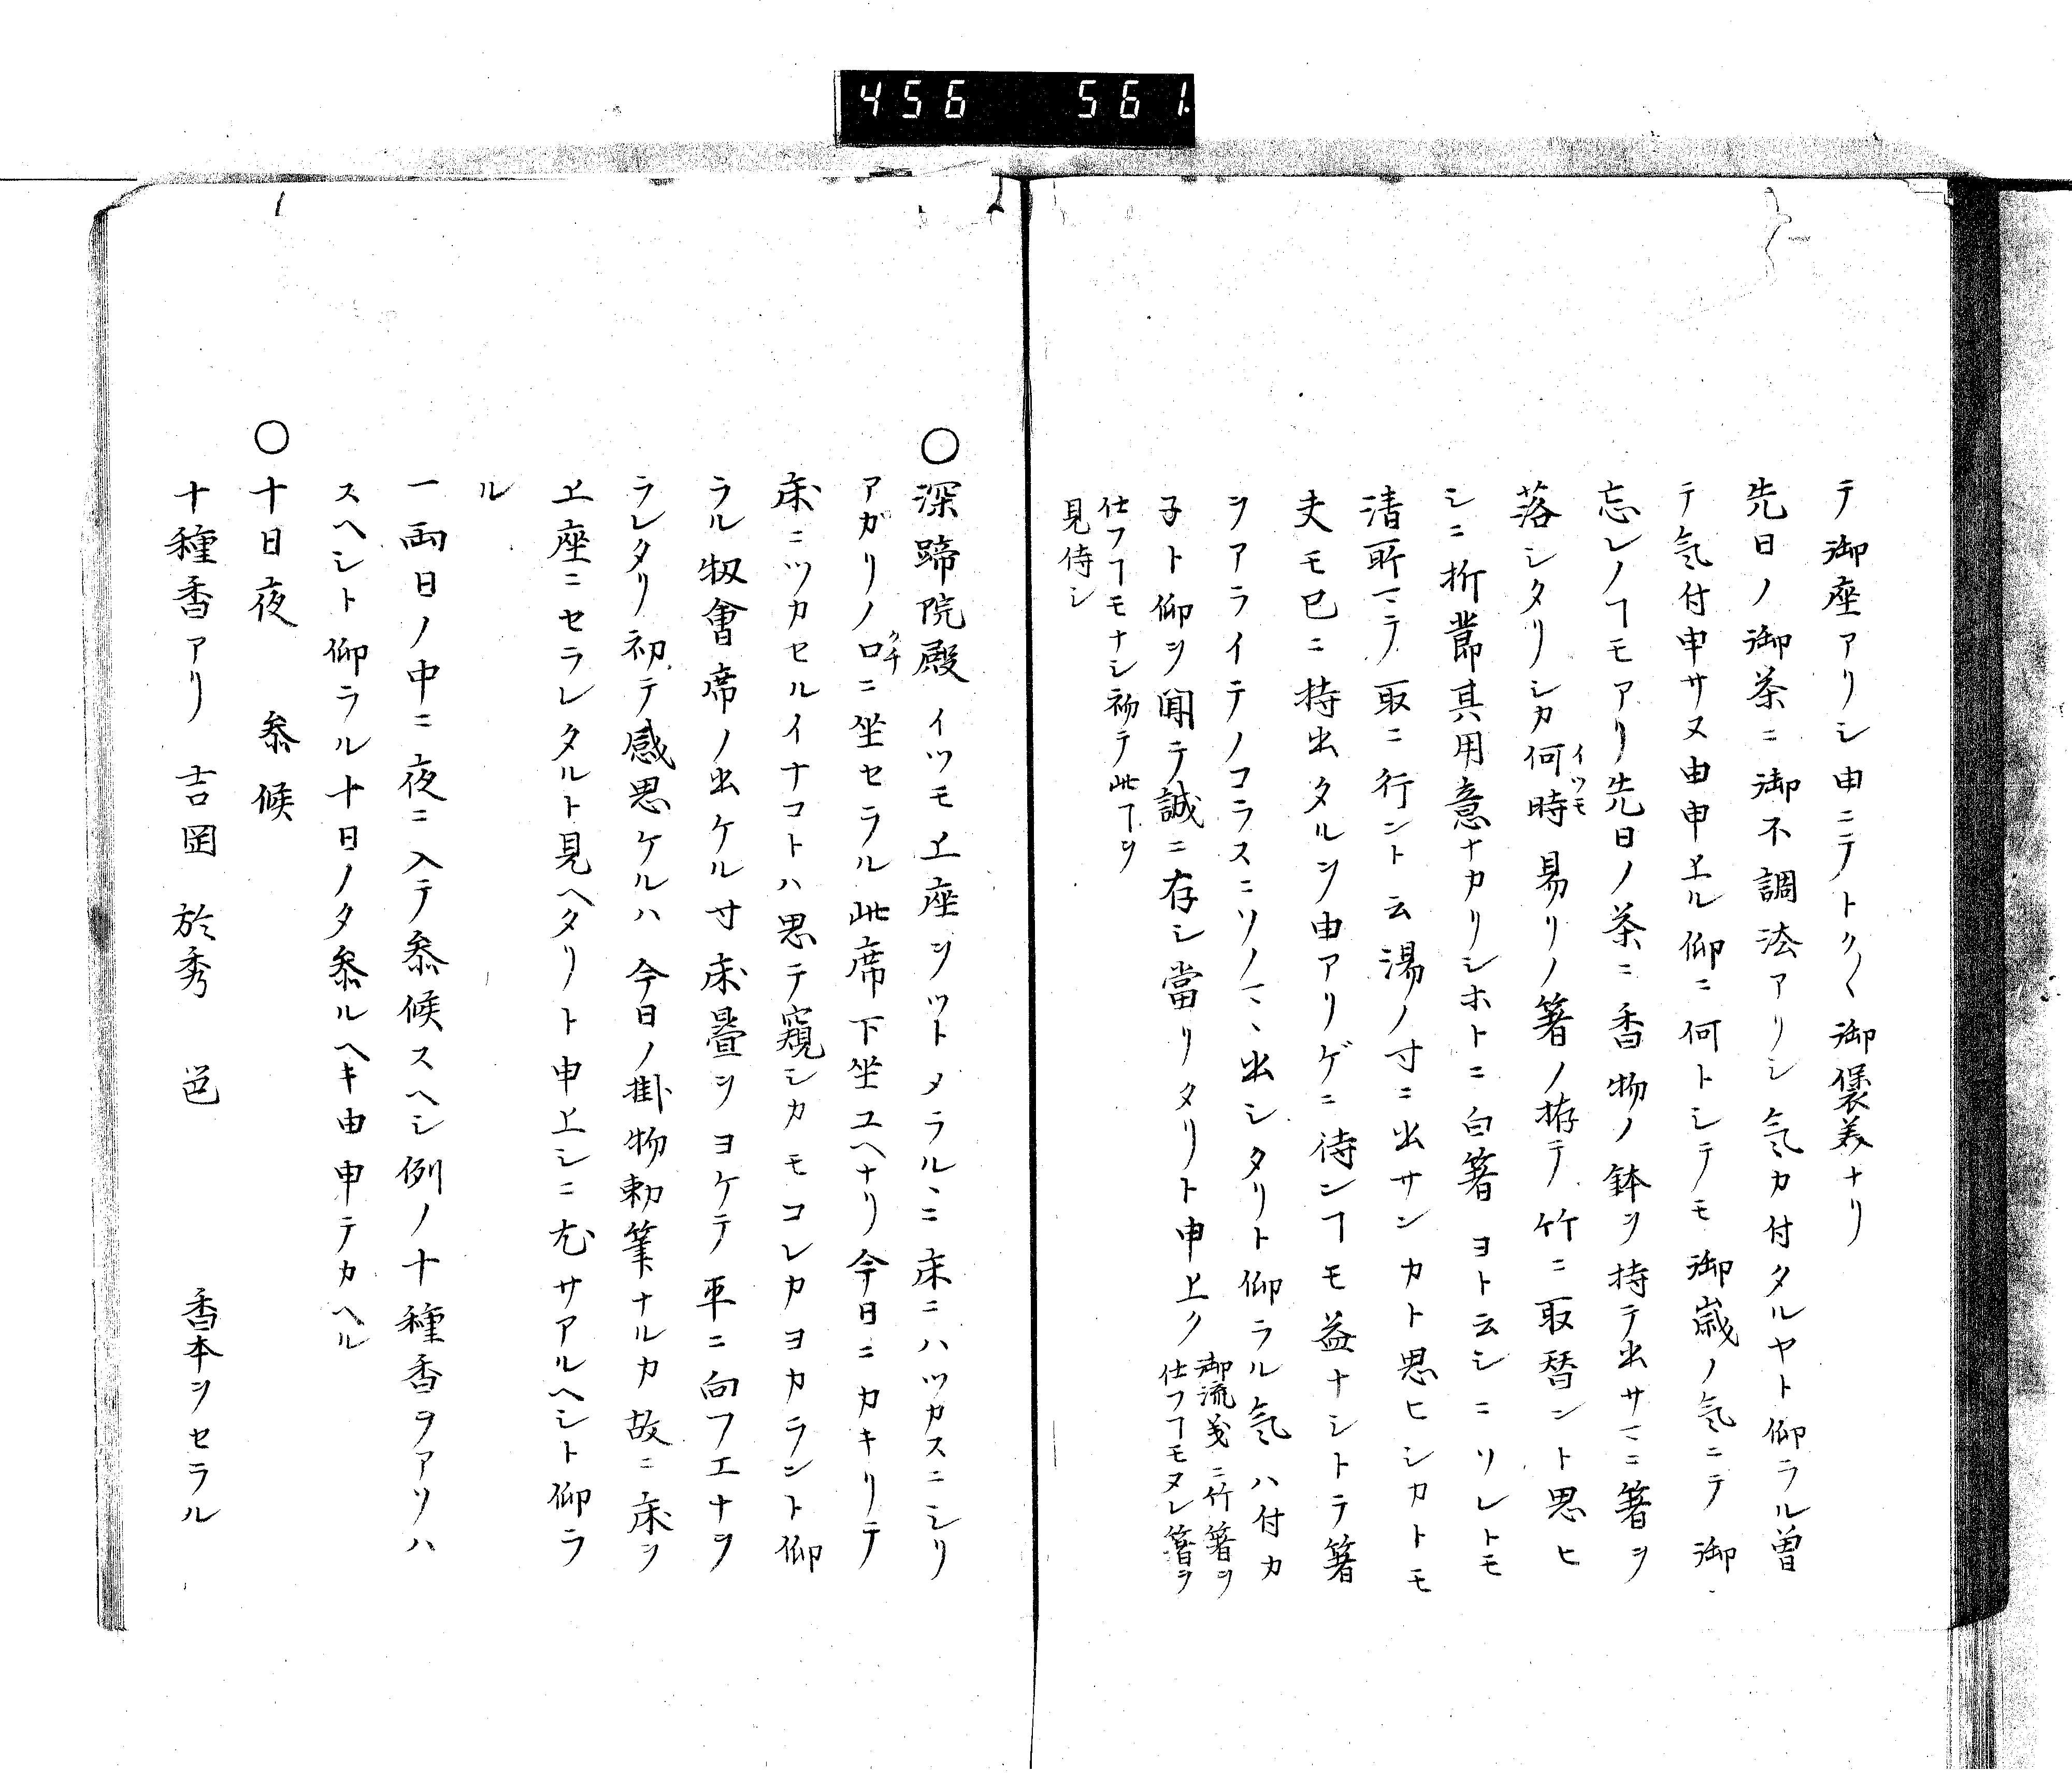 456 561
テ御座アリシ申ニテトク〱御褒美ナリ
先日ノ御茶ニ御不調法アリシ気カ付タルヤト仰ラル曽
テ気付申サヌ由申上ル仰ニ何トシテモ御歳ノ気ニテ御
忘レノヿモアリ先日ノ茶ニ香物ノ鉢ヲ持テ出サマニ箸ヲ
落シタリシカ何時イツモ易リノ箸ノ拵テ竹ニ取替ント思ヒ
シニ折節其用意ナカリシホトニ白箸ヨト云シニソレトモ
清所マテ取ニ行ント云湯ノ寸ニ出サンカト思ヒシカトモ
夫モ已ニ持出タルヲ由アリゲニ待ンヿモ益ナシトテ箸
ヲアライテノコラスニソノマヽ出シタリト仰ラル気ハ付カ
子ト仰ヲ聞テ誠ニ存シ當リタリト申上ク
御流義ニ竹箸ヲ
仕フヿモヌレ箸ヲ
仕フヿモナシ初テ此ヿヲ
見侍シ
○深諦院殿イツモ上座ヲツトメラルヽニ床ニハツカスニシリ
アガリノ口クチニ坐セラル此席下坐ユヘナリ今日ニカキリテ
床ニツカセルイナコトハ思テ窺シカモコレカヨカラント仰
ラル扨會席ノ出ケル寸床疊ヲヨケテ平ニ向フエナヲ
ラレタリ初テ感思ケルハ今日ノ掛物勅筆ナルカ故ニ床ヲ
上座ニセラレタルト見ヘタリト申上シニ尤サアルヘシト仰ラ
ル
一両日ノ中ニ夜ニ入テ叅候スヘシ例ノ十種香ヲアソハ
スヘシト仰ラル十日ノ夕叅ルヘキ由申テカヘル
○十日夜 叅候
十種香アリ 吉岡 於秀 邑 香本ヲセラル